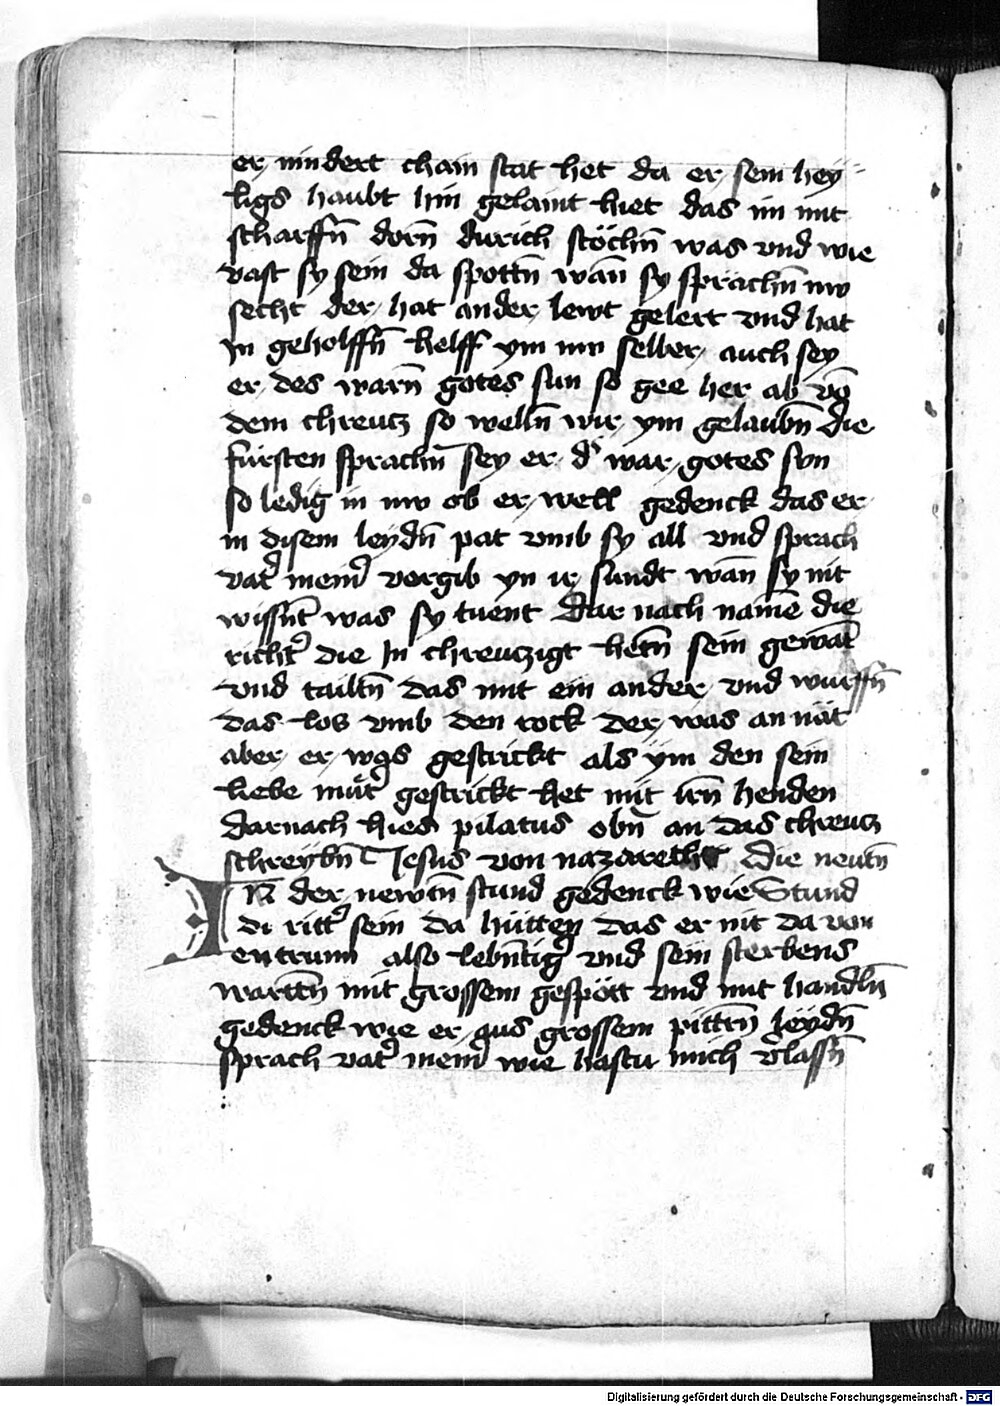 er nindert chain stat het da er sein hey¬
ligs haubt hin gelaint hiet das im mit
scharffn̄ dorn̄ durich stöchn̄ was vnd wie
vast sy sein da spottn̄ wan̄ sy sprachn̄ nw
secht der hat ander lewt gelert vnd hat
In geholffn̄ helff ym nw selber auch sey
er des warn̄ gotes sun so gee her ab vō
dem chreutz so welln̄ wir ym gelaubn̄ die
fürsten sprachn̄ sey er d' war gotes sun
so ledig in nw ob er well gedenck das er
in disem leydn̄ pat vmb sy all vnd sprach
vat' mein' vergib yn ir sundt wan̄ sy nit
wissn̄t was sy tuent Dar nach namē die
richt' die In chreutzigt hetn̄ sein gewāt
vnd tailtn̄ das mit ein ander vnd wurffn̄
das los vmb den rock der was an nät
aber er was gestrickt als ym den sein
liebe mut' gestrickt het mit irn̄ henden
darnach hies pilatus obn̄ an das chreutz
schreybn̄ Jesus von nazareth Die neutn̄
In̄ der newtn̄ stund gedenck wie Stund
di ritt' sein da hütten das er nit da von
entrunn also lebn̄tig' vnd sein sterbens
warttn̄ mit grossem gespött vnd mit handln̄
gedenck wie er aus grossem pittrn̄ leydn̄
sprach vat' mein' wie hastu mich v'lassn̄
Digitalisierung gefördert durch die Deutsche Forschungsgemeinschaft - DFG